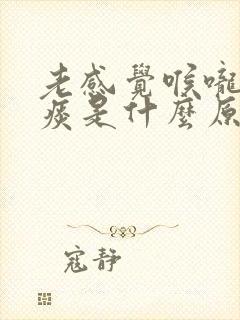 老感覺喉嚨
痰是什麼原
寇靜